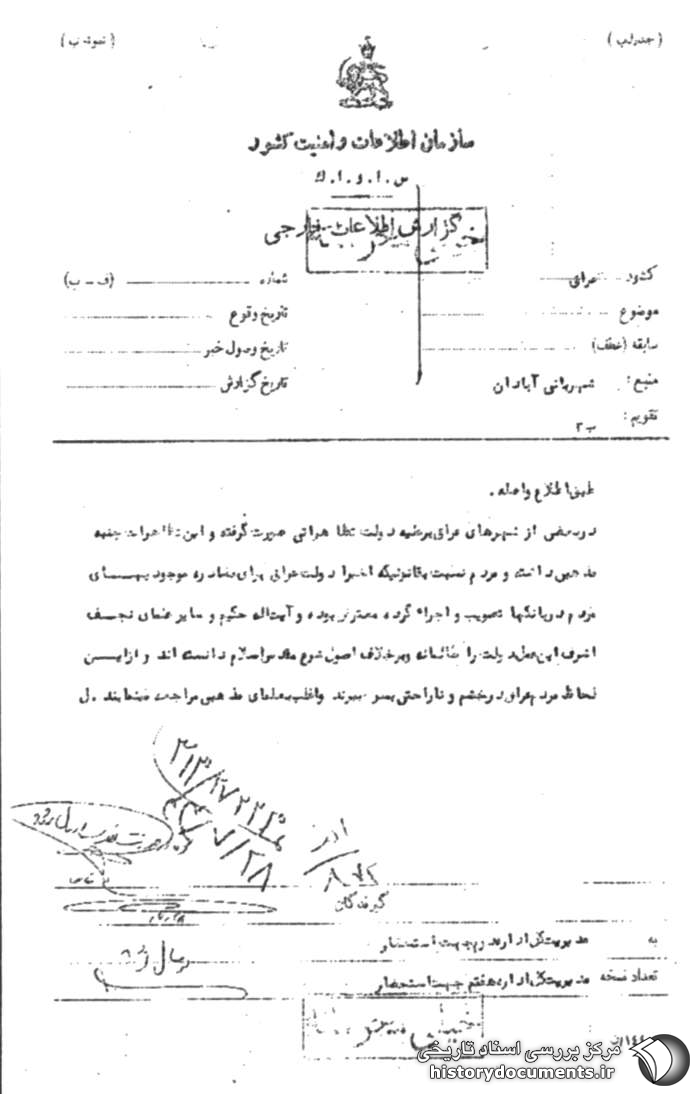 (جدول ب) (نمونه ب)
سازمان اطلاعات و امنیت کشور
س.ا.و.ا.ک
گزارش اطلاعات خارجی
کشور عراق
شماره (ف - ب)
موضوع
تاریخ وقوع
سابقه (عطف)
تاریخ وصول خبر
منبع: شهربانی آبادان
تاریخ گزارش
تقویم: ب ۲
طبق اطلاع واصله.
در بعضی از شهرهای عراق برعلیه دولت تظاهراتی صورت گرفته و این تظاهرات جنبه
مذهبی داشته و مردم نسبت بقانونیکه اخیرا دولت عراق برای مصادره موجودیهای
مردم در بانکها تصویب و اجراء کرده معترض بوده و آیت‌اله حکیم و سایر علمای نجف
اشرف این عمل دولت را ظالمانه و برخلاف اصول شرع مقدس اسلام دانسته اند و از این
لحاظ مردم عراق در خشم و ناراحتی بسر میبرند و اغلب بعلمای مذهبی مراجعه مینمایند. ل
۳۱۲/
۲۸
گیرندگان
به مدیریت کل اداره جهت استحضار
تعداد نسخه مدیریت کل اداره هفتم جهت استحضار
بایگانی شود
مرکز بررسی اسناد تاریخی
historydocuments.ir